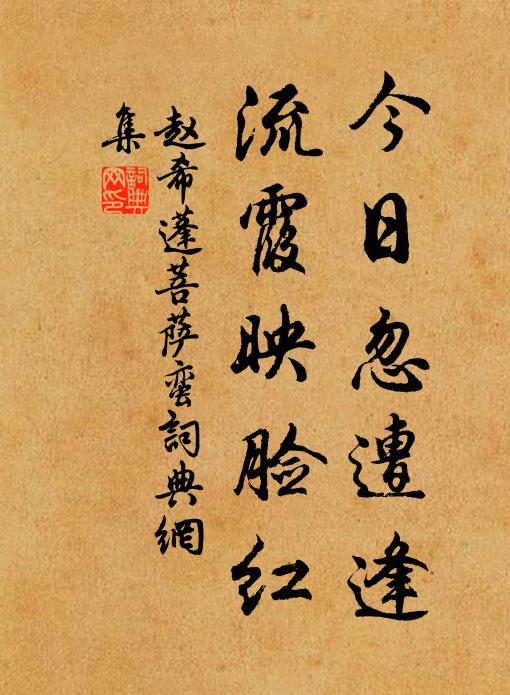 今日忽遭逢
流霞映脸红
赵希蓬菩萨蛮词典網
集
詞典
网印